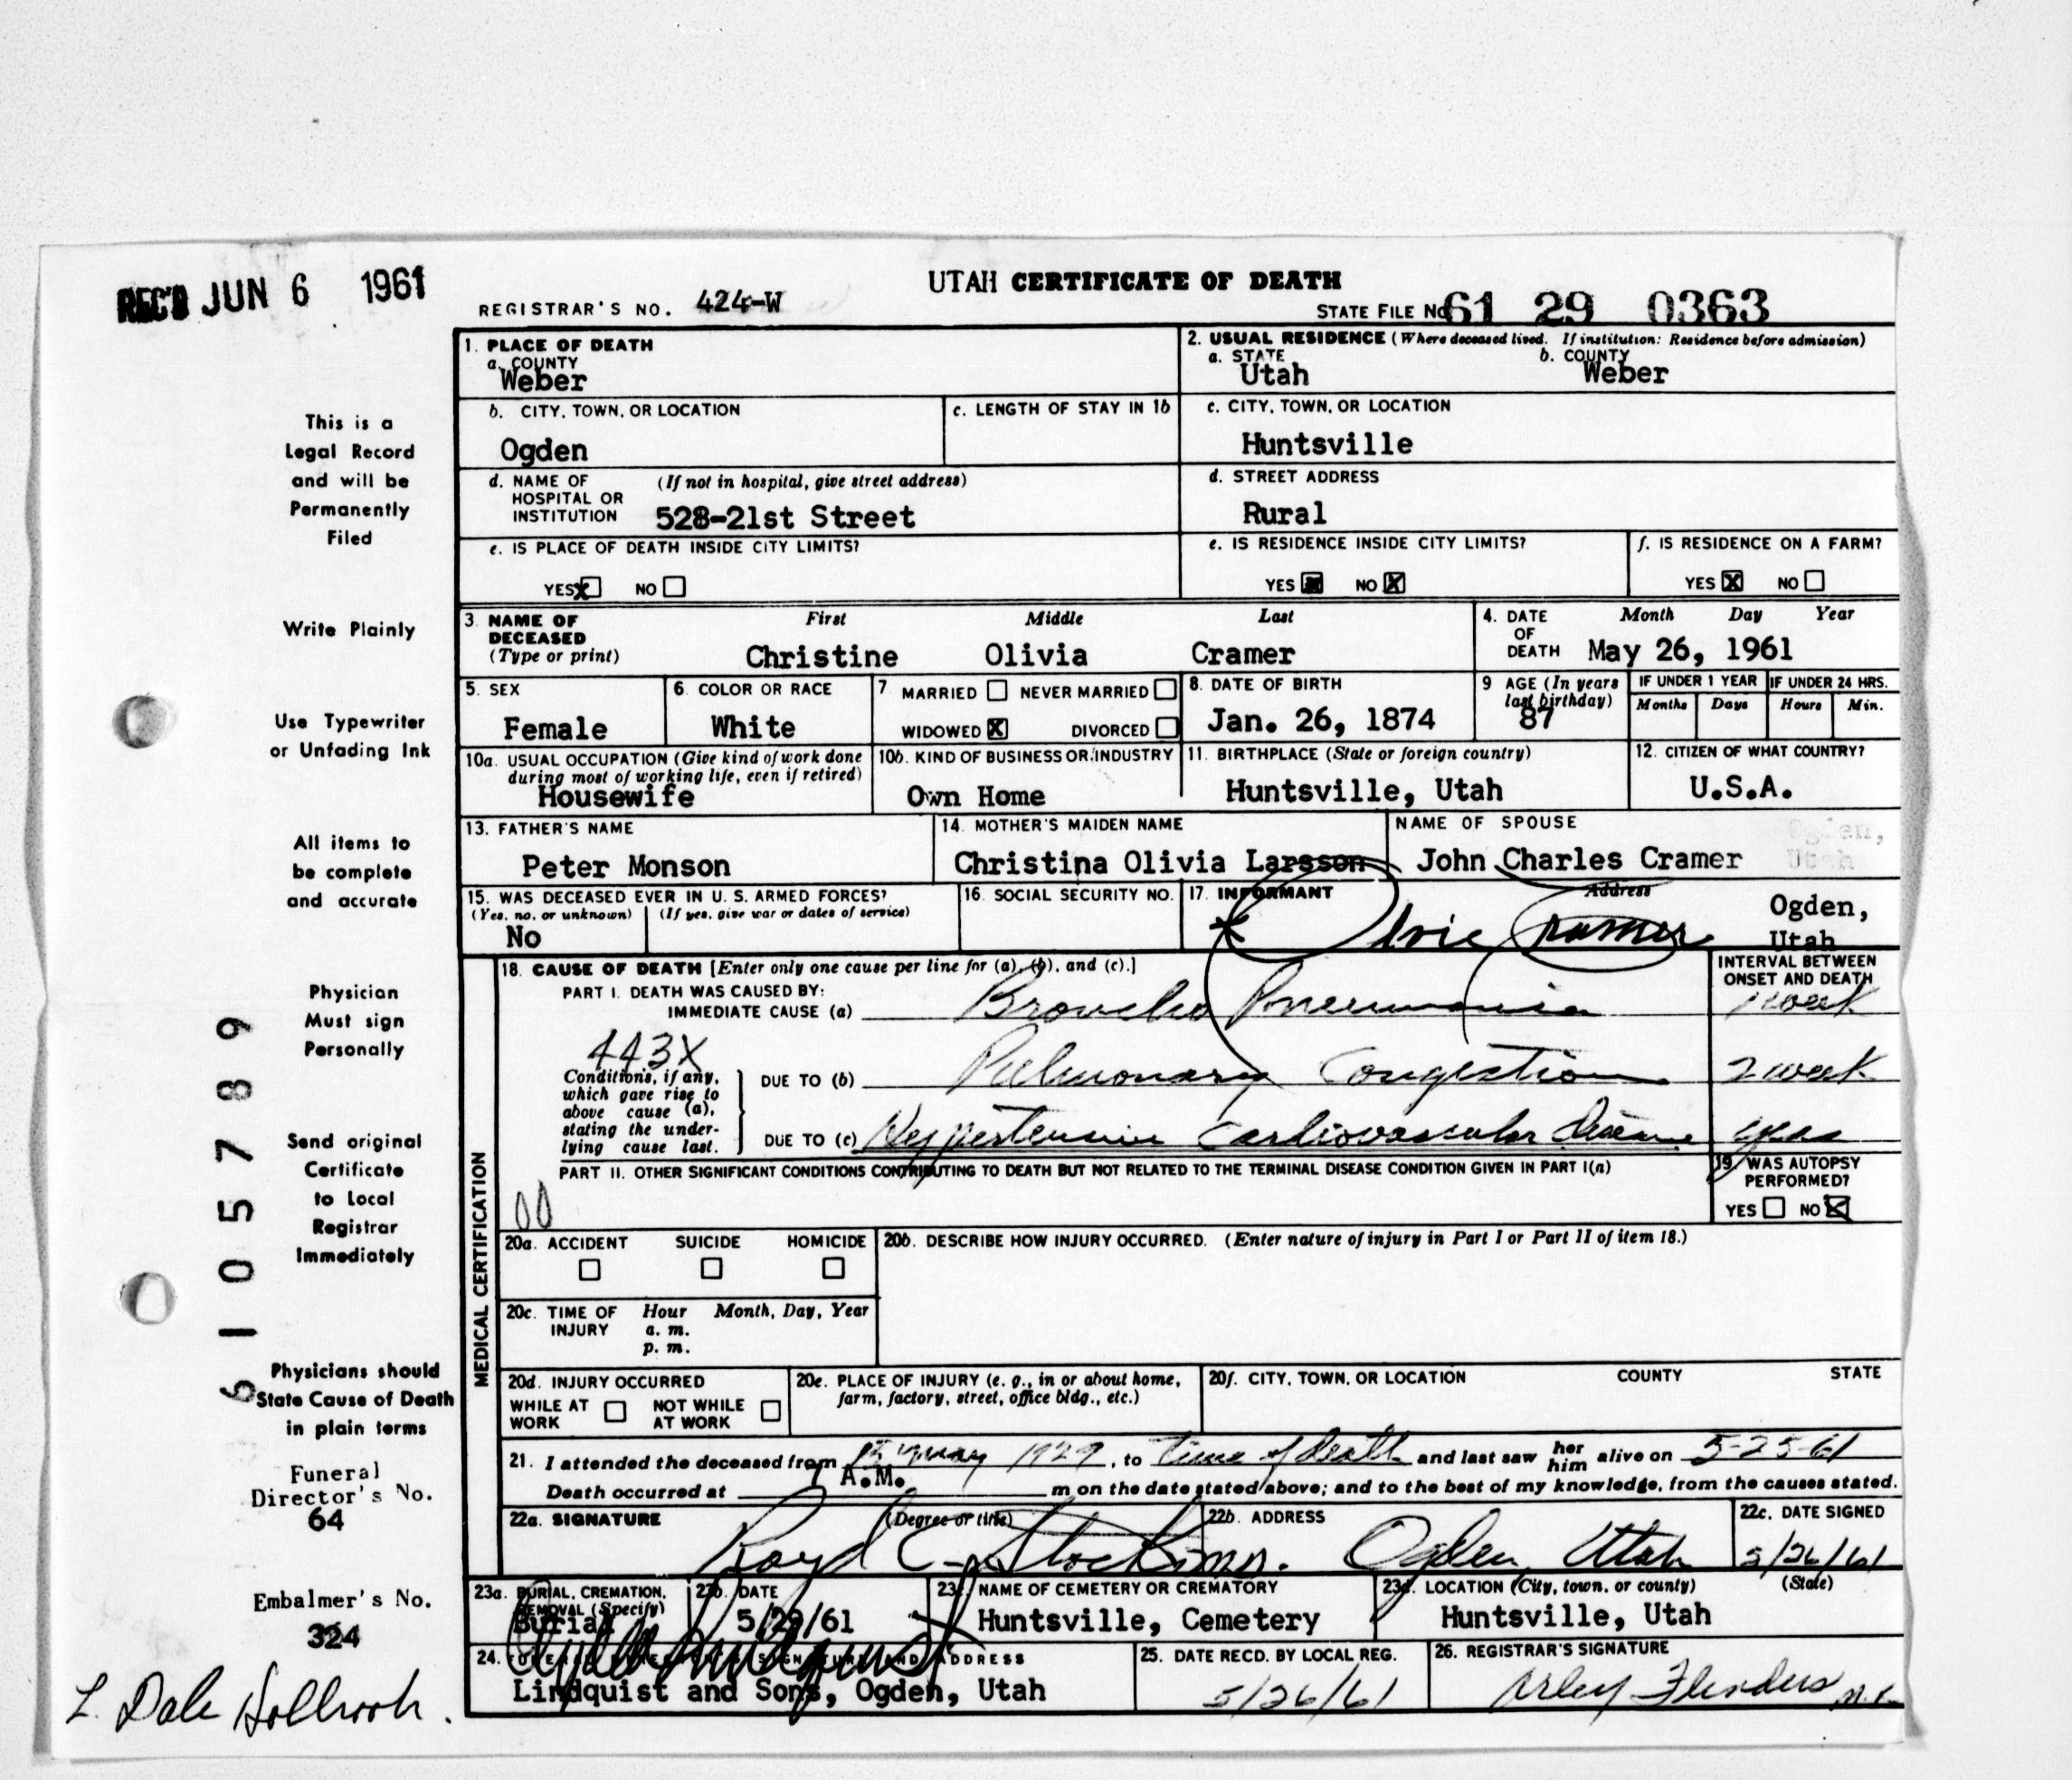 REC'D JUN 6 1961
UTAH CERTIFICATE OF DEATH
REGISTRAR'S NO. 424-W
STATE FILE No 61 29 0363
1. PLACE OF DEATH
a. COUNTY
Weber
2. USUAL RESIDENCE (Where deceased lived. If institution: Residence before admission)
a. STATE
Utah
b. COUNTY
Weber
b. CITY, TOWN, OR LOCATION
Ogden
c. LENGTH OF STAY IN 1b
c. CITY, TOWN, OR LOCATION
Huntsville
d. NAME OF HOSPITAL OR INSTITUTION (If not in hospital, give street address)
528-21st Street
d. STREET ADDRESS
Rural
e. IS PLACE OF DEATH INSIDE CITY LIMITS?
YES X NO
e. IS RESIDENCE INSIDE CITY LIMITS?
YES NO X
f. IS RESIDENCE ON A FARM?
YES X NO
3. NAME OF DECEASED (Type or print)
First Middle Last
Christine Olivia Cramer
4. DATE OF DEATH
Month Day Year
May 26, 1961
5. SEX
Female
6. COLOR OR RACE
White
7. MARRIED NEVER MARRIED
WIDOWED X DIVORCED
8. DATE OF BIRTH
Jan. 26, 1874
9 AGE (In years last birthday)
87
IF UNDER 1 YEAR
Months Days
IF UNDER 24 HRS.
Hours Min.
10a. USUAL OCCUPATION (Give kind of work done during most of working life, even if retired)
Housewife
10b. KIND OF BUSINESS OR INDUSTRY
Own Home
11. BIRTHPLACE (State or foreign country)
Huntsville, Utah
12. CITIZEN OF WHAT COUNTRY?
U.S.A.
13. FATHER'S NAME
Peter Monson
14. MOTHER'S MAIDEN NAME
Christina Olivia Larsson
NAME OF SPOUSE
John Charles Cramer
Ogden,
Utah
15. WAS DECEASED EVER IN U. S. ARMED FORCES?
(Yes, no, or unknown) (If yes, give war or dates of service)
No
16. SOCIAL SECURITY NO.
17. INFORMANT Address
Cramer
Ogden,
Utah
MEDICAL CERTIFICATION
18. CAUSE OF DEATH [Enter only one cause per line for (a), (b), and (c).]
INTERVAL BETWEEN ONSET AND DEATH
PART I. DEATH WAS CAUSED BY:
IMMEDIATE CAUSE (a) Broncho Pneumonia 1 week
443X
Conditions, if any, which gave rise to above cause (a), stating the underlying cause last.
DUE TO (b) Pulmonary Congestion 2 week
DUE TO (c) Hypertensive Cardiovascular Disease years
PART II. OTHER SIGNIFICANT CONDITIONS CONTRIBUTING TO DEATH BUT NOT RELATED TO THE TERMINAL DISEASE CONDITION GIVEN IN PART I(a)
00
19. WAS AUTOPSY PERFORMED?
YES NO X
20a. ACCIDENT SUICIDE HOMICIDE
20b. DESCRIBE HOW INJURY OCCURRED. (Enter nature of injury in Part I or Part II of item 18.)
20c. TIME OF INJURY Hour Month, Day, Year
a. m.
p. m.
20d. INJURY OCCURRED
WHILE AT WORK NOT WHILE AT WORK
20e. PLACE OF INJURY (e. g., in or about home, farm, factory, street, office bldg., etc.)
20f. CITY, TOWN, OR LOCATION COUNTY STATE
21. I attended the deceased from 15 May 1929, to time of death and last saw her him alive on 5-25-61
Death occurred at A.M. m on the date stated above; and to the best of my knowledge, from the causes stated.
22a. SIGNATURE (Degree or title)
22b. ADDRESS
Ogden, Utah
22c. DATE SIGNED
5/26/61
23a. BURIAL, CREMATION, REMOVAL (Specify)
Burial
23b. DATE
5/29/61
23c. NAME OF CEMETERY OR CREMATORY
Huntsville, Cemetery
23d. LOCATION (City, town, or county) (State)
Huntsville, Utah
24. FUNERAL DIRECTOR'S SIGNATURE AND ADDRESS
Lindquist and Sons, Ogden, Utah
25. DATE RECD. BY LOCAL REG.
5/26/61
26. REGISTRAR'S SIGNATURE
Arley Flinders
This is a
Legal Record
and will be
Permanently
Filed
Write Plainly
Use Typewriter
or Unfading Ink
All items to
be complete
and accurate
Physician
Must sign
Personally
Send original
Certificate
to Local
Registrar
Immediately
Physicians should
State Cause of Death
in plain terms
6105789
Funeral
Director's No.
64
Embalmer's No.
324
L. Dale Holbrook.